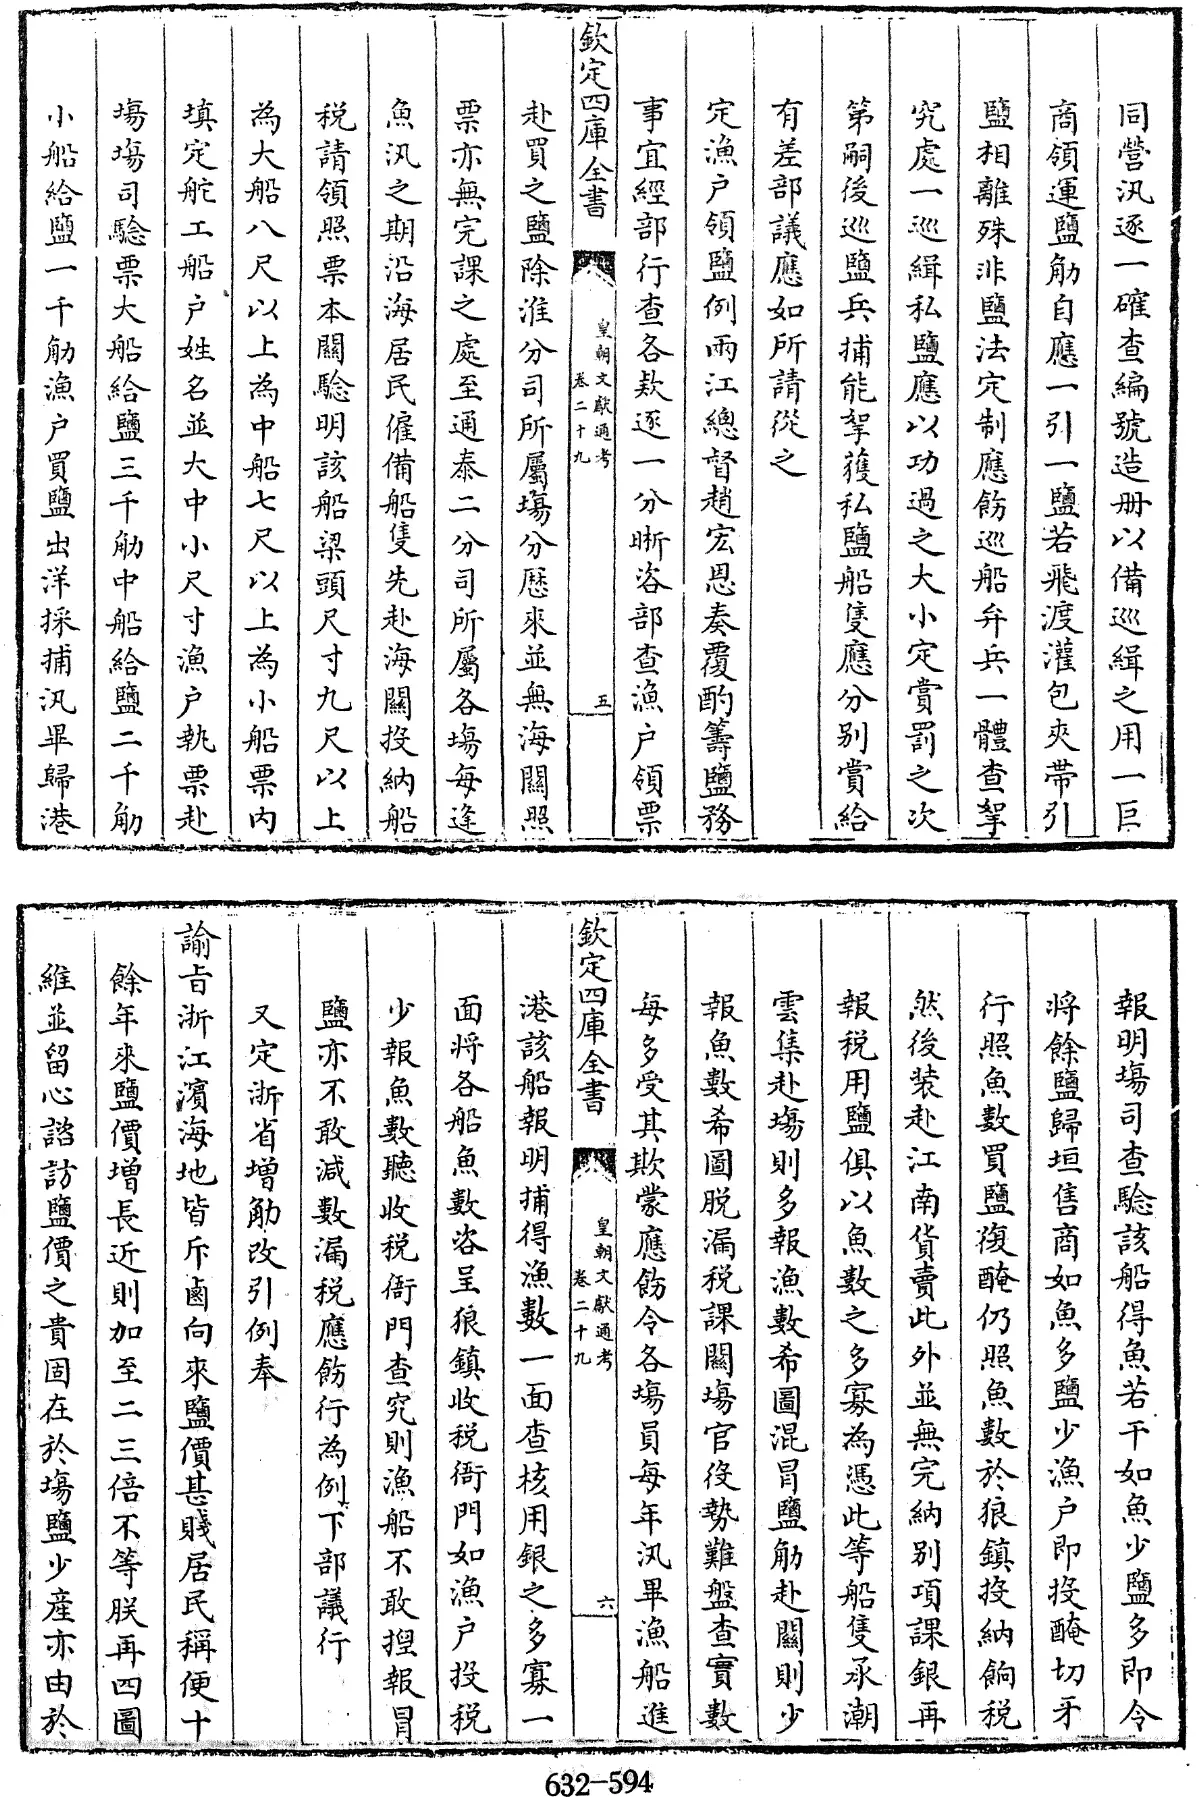 同營汛逐一確查編號造册以備巡緝之用一巨
商領運鹽觔自應一引一鹽若飛渡灌包夾帶引
鹽相離殊非鹽法定制應飭巡船弁兵一體查拏
究處一巡緝私鹽應以功過之大小定賞罰之次
第嗣後巡鹽兵捕能拏獲私鹽船隻應分别賞給
有差部議應如所請從之
定漁户領鹽例兩江總督趙宏恩奏覆酌籌鹽務
事宜經部行查各欵逐一分晰咨部查漁户領票
欽定四庫全書
皇朝文獻通考
卷二十九
五
赴買之鹽除淮分司所屬塲分歷來並無海關照
票亦無完課之處至通泰二分司所屬各塲每逢
魚汛之期沿海居民僱備船隻先赴海關投納船
税請領照票本關驗明該船梁頭尺寸九尺以上
為大船八尺以上為中船七尺以上為小船票内
填定舵工船户姓名並大中小尺寸漁户執票赴
塲塲司驗票大船給鹽三千觔中船給鹽二千觔
小船給鹽一千觔漁户買鹽出洋採捕汛畢歸港
報明塲司查驗該船得魚若干如魚少鹽多即令
将餘鹽歸垣售商如魚多鹽少漁户即投醃切牙
行照魚數買鹽復醃仍照魚數於狼鎮投納餉税
然後装赴江南貨賣此外並無完納别項課銀再
報税用鹽俱以魚數之多寡為憑此等船隻承潮
雲集赴塲則多報漁數希圖混冒鹽觔赴關則少
報魚數希圖脱漏税課關塲官役勢難盤查實數
每多受其欺蒙應飭令各塲員每年汛畢漁船進
欽定四庫全書
皇朝文獻通考
卷二十九
六
港該船報明捕得漁數一面查核用銀之多寡一
面將各船魚數咨呈狼鎮收税衙門如漁户投税
少報魚數聽收税衙門查究則漁船不敢揑報冒
鹽亦不敢減數漏税應飭行為例下部議行
又定浙省增觔改引例奉
諭旨浙江濱海地皆斥鹵向來鹽價甚賤居民稱便十
餘年來鹽價增長近則加至二三倍不等朕再四圖
維並留心諮訪鹽價之貴固在於塲鹽少産亦由於
632-594